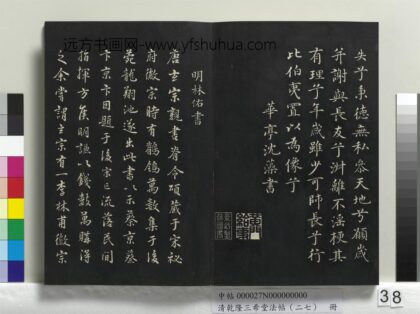 远方书画网 www.yfshuhua.com
失兮秉德無私參天地兮願歲
并謝與長友兮淑離不淫梗其
有理兮年歲雖少可師長兮行
比伯夷置以為像兮
華亭沈藻書
明林佑書
唐玄宗親書脊令頌藏于宋秘
府徽宗時有鶺鴒萬數集于後
苑龍翔池遂出此書以示蔡京蔡
卞京卞因題于後宋亡流落民間
指揮方侯明謙以錢數萬購得
之余嘗謂玄宗有一李林甫徽宗
中帖 000027N000000000
清乾隆三希堂法帖(二七) 冊
38